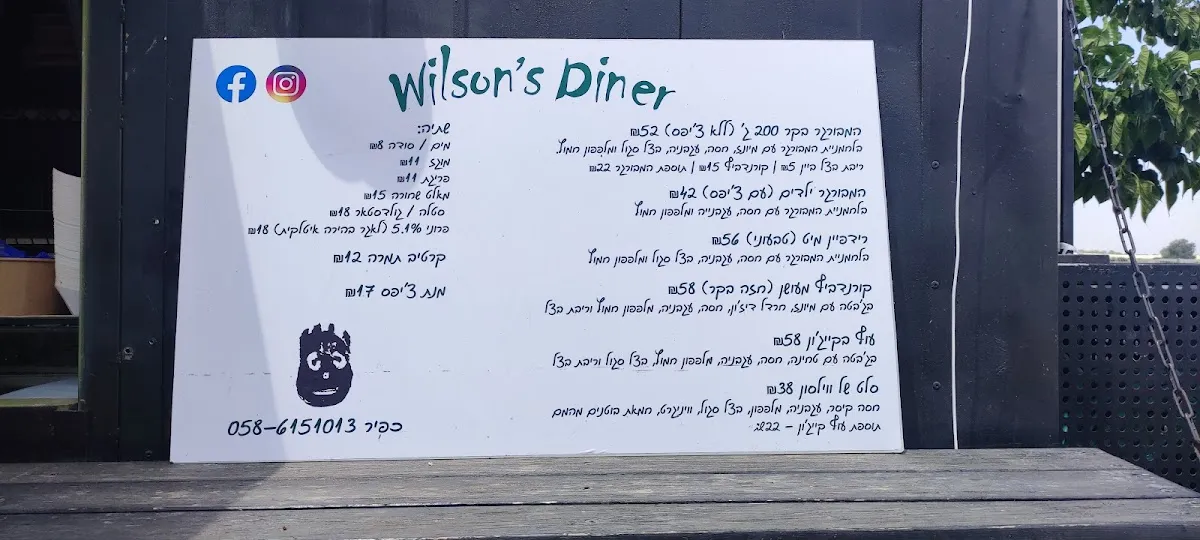 Wilson's Diner
המבורגר בקר 200 ג' (ללא צ'יפס) 52₪
בלחמניית המבורגר עם מיונז, חסה, עגבניה, בצל סגול ומלפפון חמוץ.
ריבת בצל ביין 5₪ | קורנדביף 15₪ | תוספת המבורגר 22₪
המבורגר ילדים (עם צ'יפס) 42₪
בלחמניית המבורגר עם חסה, עגבניה ומלפפון חמוץ
רידפיין מיט (טבעוני) 56₪
בלחמניית המבורגר עם חסה, עגבניה, בצל סגול ומלפפון חמוץ
קורנדביף מעושן (חזה בקר) 58₪
בג'בטה עם מיונז, חרדל דיז'ון, חסה, עגבניה, מלפפון חמוץ וריבת בצל
עוף בקייג'ון 58₪
בג'בטה עם טחינה, חסה, עגבניה, מלפפון חמוץ, בצל סגול וריבת בצל
סלט של ווילסון 38₪
חסה קיסר, עגבניה, מלפפון, בצל סגול, וויניגרט, חמאת בוטנים מהמם
תוספת עוף קייג'ון – 22₪
שתיה:
מים / סודה 8₪
מוגז 11₪
פריגת 11₪
מאלט שחורה 15₪
סטלה / גולדסטאר 18₪
פרוני 5.1% (לאגר בהירה איטלקית) 18₪
קרטיב תמרה 12₪
מנת צ'יפס 17₪
כפיר 058-6151013